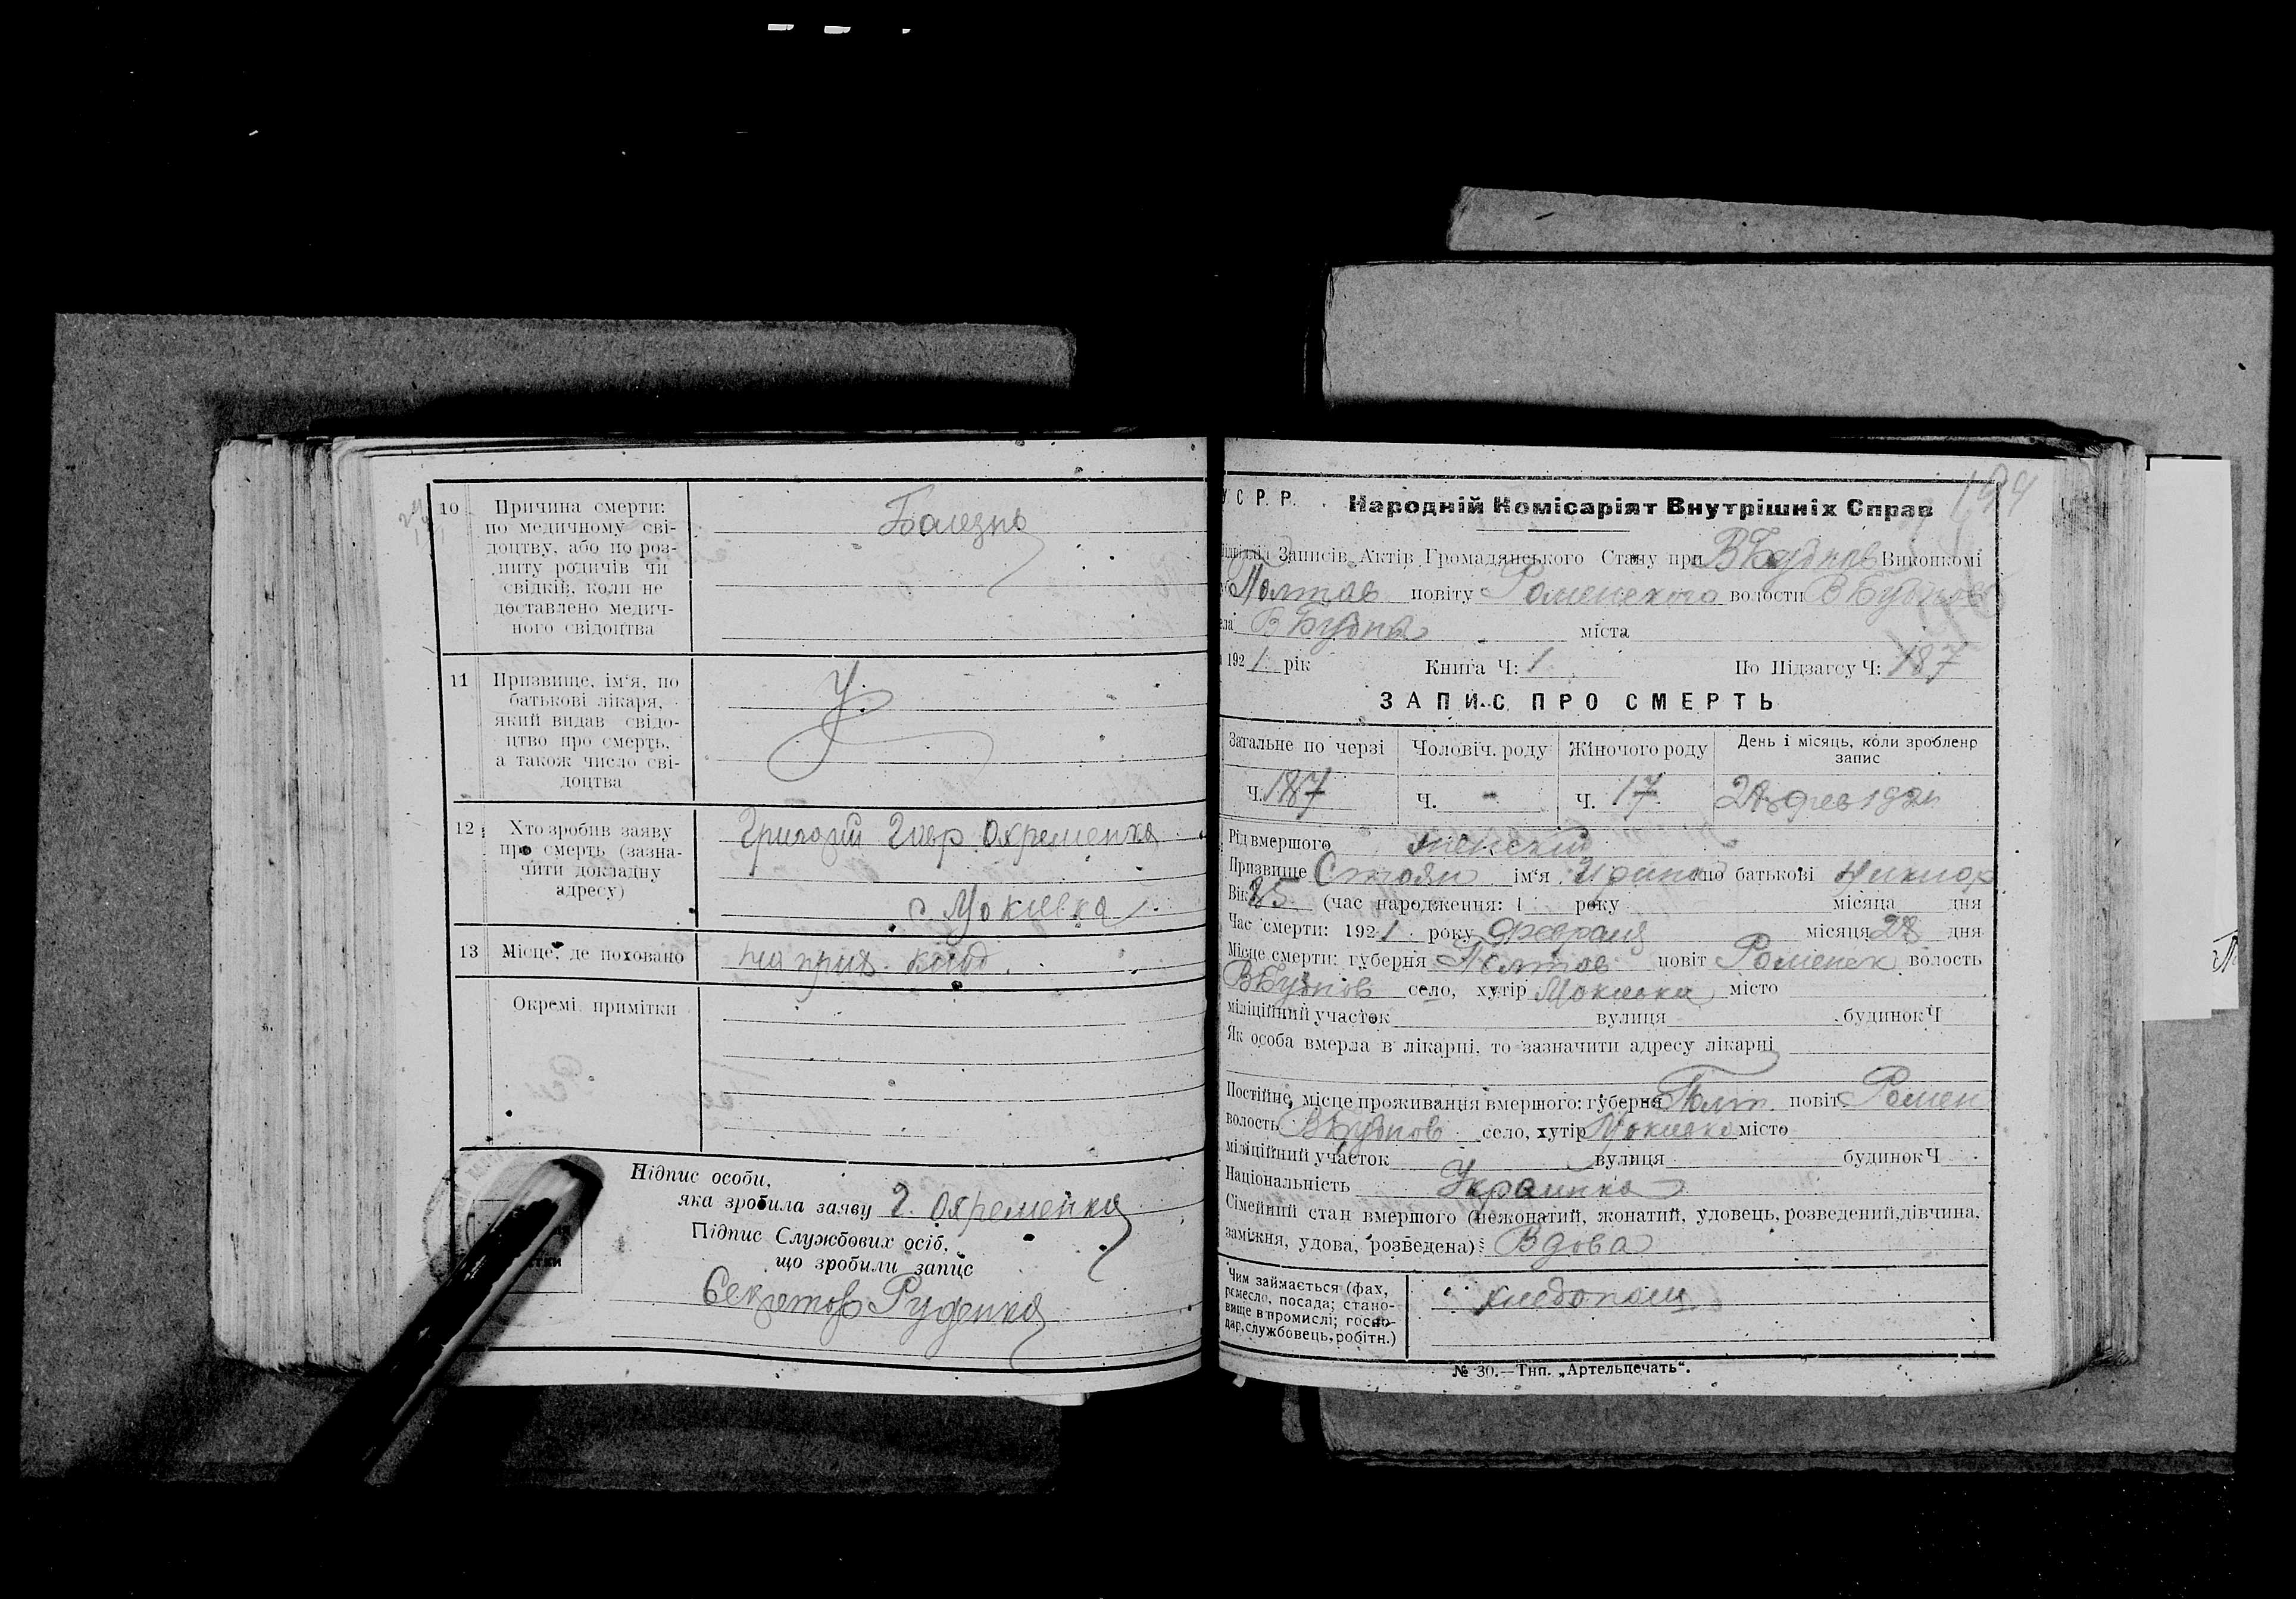 10
Причина смерти:
по медичному сві-
доцтву, або по роз-
питу родичів чи
свідків, коли не
доставлено медич-
ного свідоцтва
Болезнь
11
Призвище, ім'я, по
батькові лікаря,
який видав свідо-
цтво про смерть,
а також число сві-
доцтва
12
Хто зробив заяву
про смерть (зазна-
чити докладну
адресу)
Григорий Гавр Охременко
с. Мокиевка
13
Місце, де поховано
на прих. клад.
Окремі примітки
Підпис особи,
яка зробила заяву Г. Охременко
Підпис Службових осіб,
що зробили запис
Секретарь Руденко
У С Р. Р. Народній Комісаріят Внутрішніх Справ
Записів Актів Громадянського Стану при ВБубнов Виконкомі
Полтав повіту Роменского волости ВБубнов
В Бубны міста
192 1 рік Книга Ч: 1 По Підзагсу Ч: 187
ЗАПИС ПРО СМЕРТЬ
Загальне по черзі Чоловіч. роду Жіночого роду День і місяць, коли зроблено
запис
Ч. 187 Ч. - Ч. 17 28 фев 1921
Рід вмершого женский
Призвище Стоян ім'я Ирина по батькові Никиор
Вік 85 (час народження: 1 року місяца дня
Час смерти: 192 1 року Февраля місяця 28 дня
Місце смерти: губерня Полтав повіт Роменск волость
ВБубнов село, хутір Мокиевка місто
міліційний участок вулиця будинок Ч
Як особа вмерла в лікарні, то зазначити адресу лікарні
Постійне місце проживання вмершого: губерня Полт. повіт Ромен
волость ВБубнов село, хутір Мокиевка місто
міліційний участок вулиця будинок Ч
Національність Украинка
Сімейний стан вмершого (нежонатий, жонатий, удовець, розведений, дівчина,
заміжня, удова, розведена): Вдова
Чим займається (фах,
ремесло, посада; стано-
вище в промислі; госпо-
дар, службовець, робітн.)
хлебопаш.
№ 30.—Тип. „Артельпечать".